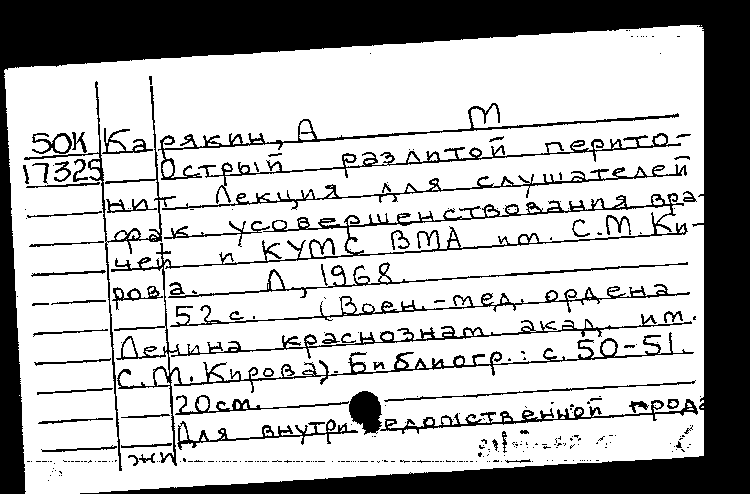 50К Карякин, А М
17325 Острый разлитой перито-
нит. Лекция для слушателей
фак. усовершенствования вра-
чей и КУМС ВМА им. С.М. Ки-
рова. Л., 1968.
52 с. (Воен.-мед. ордена
Ленина краснознам. акад. им.
С.М. Кирова). Библиогр.: с. 50-51.
20 см.
Для внутриведомственной прода
жи.